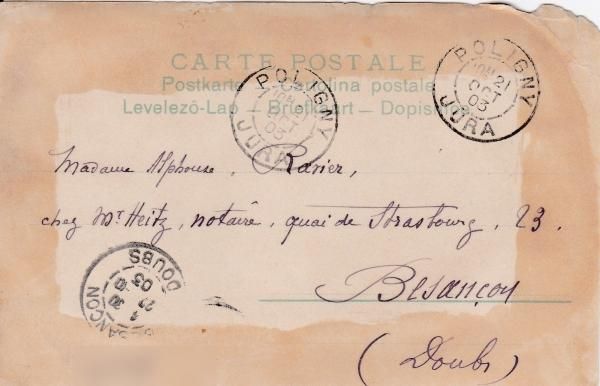 CARTE POSTALE
Postkarte — Cartolina postale
Levelező-Lap — Briefkaart — Dopisnice
POLIGNY
21
OCT
03
JURA
POLIGNY
OCT
03
JURA
Madame Alphonse, Ravier,
chez Mr Heitz, notaire, quai de Strasbourg, 23.
Besançon
(Doubs)
BESANÇON
DOUBS
03